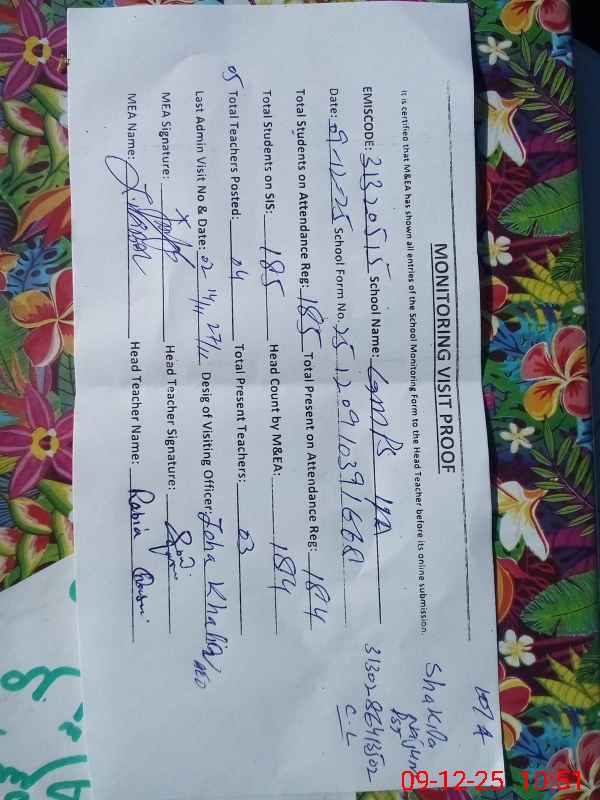 MONITORING VISIT PROOF
It is certified that M&EA has shown all entries of the School Monitoring Form to the Head Teacher before its online submission.
EMISCODE: 31320515 School Name: GGMPS 14A
Date: 09-12-25 School Form No. 251209103916681
Total Students on Attendance Reg: 185 Total Present on Attendance Reg: 184
Total Students on SIS: 185 Head Count by M&EA: 184
05 Total Teachers Posted: 04 Total Present Teachers: 03
Last Admin Visit No & Date: 02 14/11 27/11 Desig of Visiting Officer: Zoha Khalid AEO
MEA Signature: Head Teacher Signature:
MEA Name: Head Teacher Name: Rabia
Shakila
PST
3130286413502
C-L
09-12-25 10:51